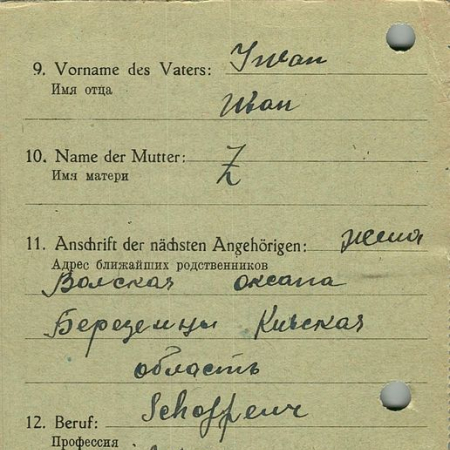 9. Vorname des Vaters: Iwan
Имя отца
Иван
10. Name der Mutter: Z
Имя матери
11. Anschrift der nächsten Angehörigen: жена
Адрес ближайших родственников
Волская оксана
Березенцы Киевская
область
12. Beruf: Schoffeur
Профессия